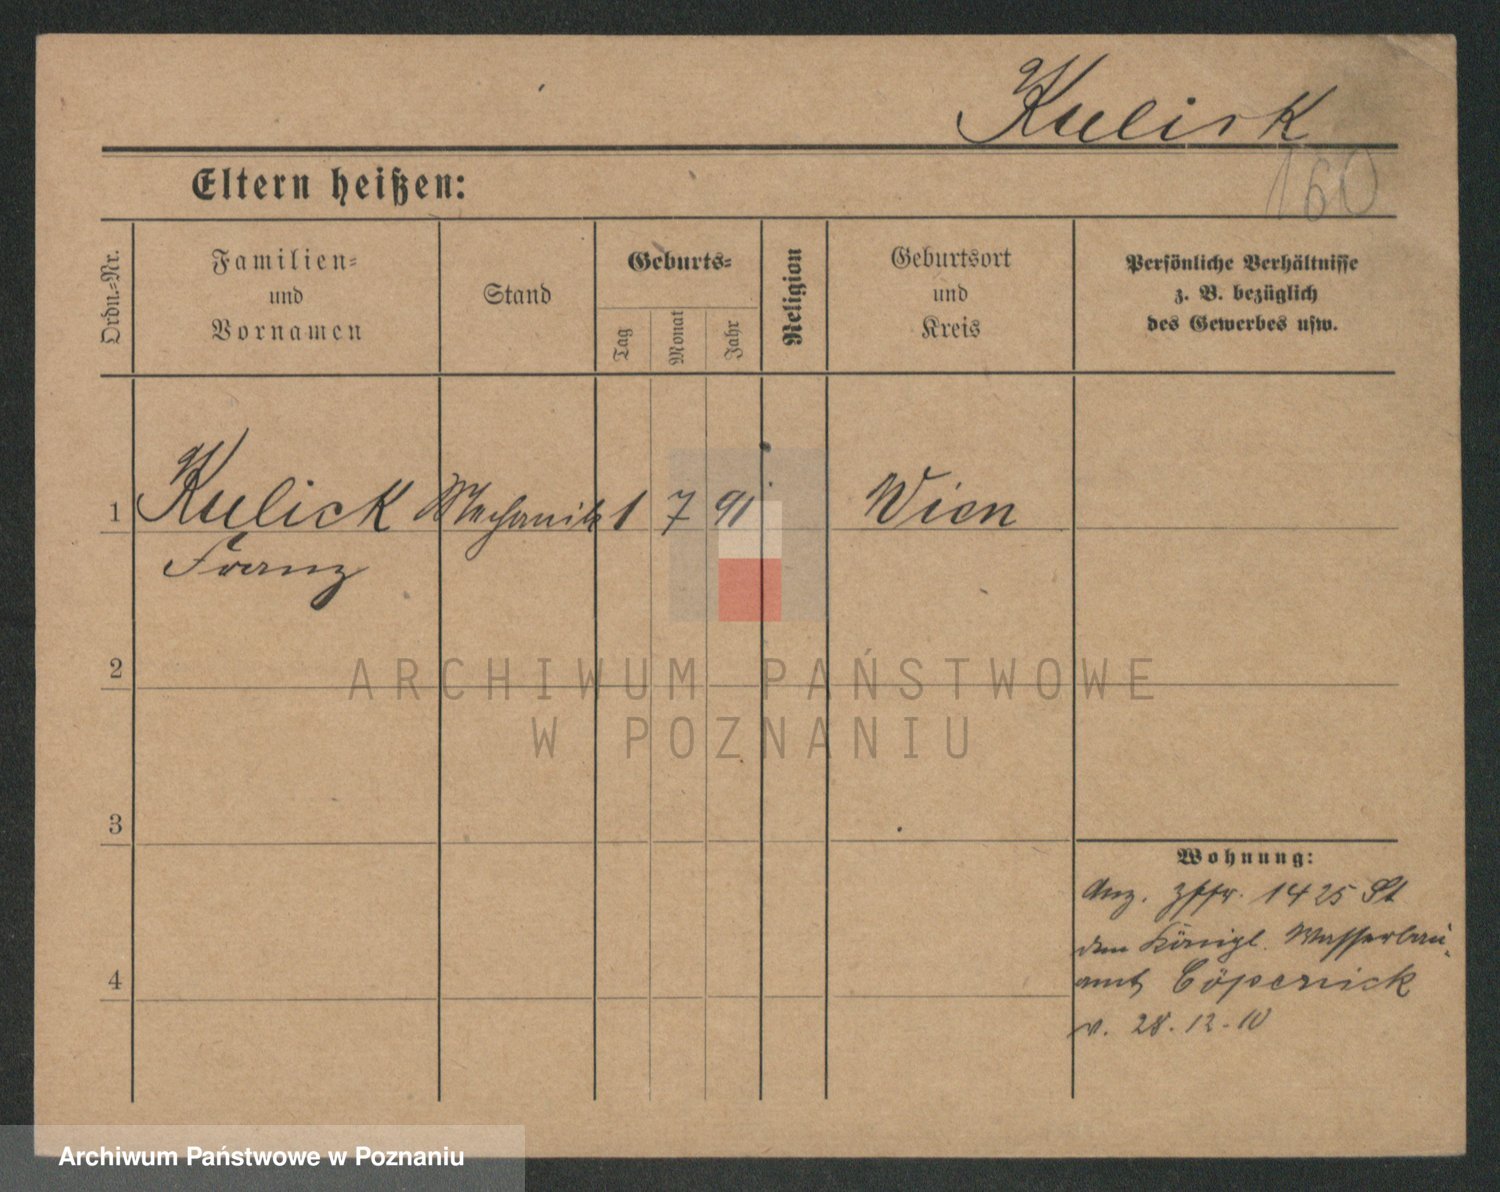 Kulick
160
Eltern heißen:
Ordn.-Nr.
Familien- und Vornamen
Stand
Geburts-
Tag
Monat
Jahr
Religion
Geburtsort und Kreis
Persönliche Verhältnisse
z. B. bezüglich
des Gewerbes usw.
1 Kulick Mechanik 1 7 91 Wien
Franz
2
ARCHIWUM PAŃSTWOWE
W POZNANIU
3
Wohnung:
Anz. 1425 St
dem Königl. Wasserbau-
4
amts Cöpenick
v. 28.12.10
Archiwum Państwowe w Poznaniu